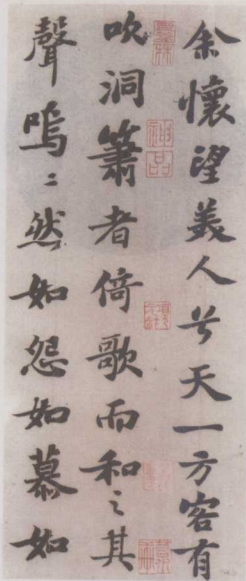 余懷望美人兮天一方客有
吹洞簫者倚歌而和之其
聲嗚〻然如怨如慕如